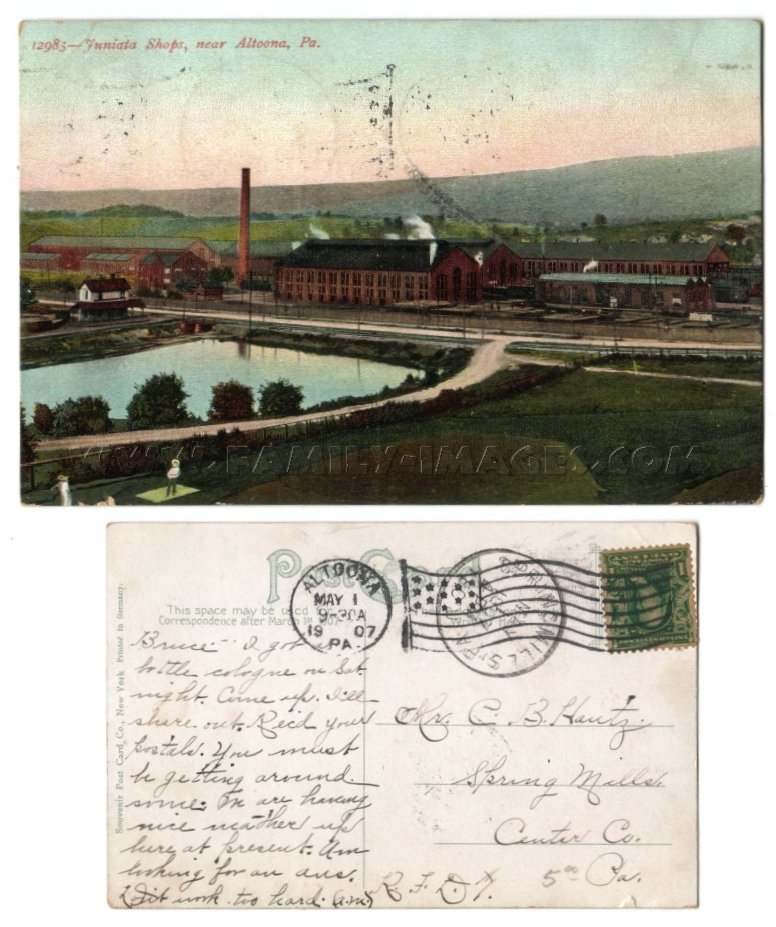 12985—Juniata Shops, near Altoona, Pa.
WWW.FAMILY-IMAGES.COM
Post Card
This space may be used
Correspondence after March 1st, 1907
ALTOONA
MAY 1
9-30A
1907
PA.
SPRING MILLS
PA.
Souvenir Post Card Co., New York Printed in Germany.
Bruce" I got
bottle cologne on Sat.
night. Come up. I'll
share out. Rec'd your
postals. You must
be getting around
some. We are having
nice weather up
here at present. Am
looking for an ans.
work too hard. (a.m.)
Mr. C. B. Hautz.
Spring Mills.
Center Co.
Pa.
R. F. D.